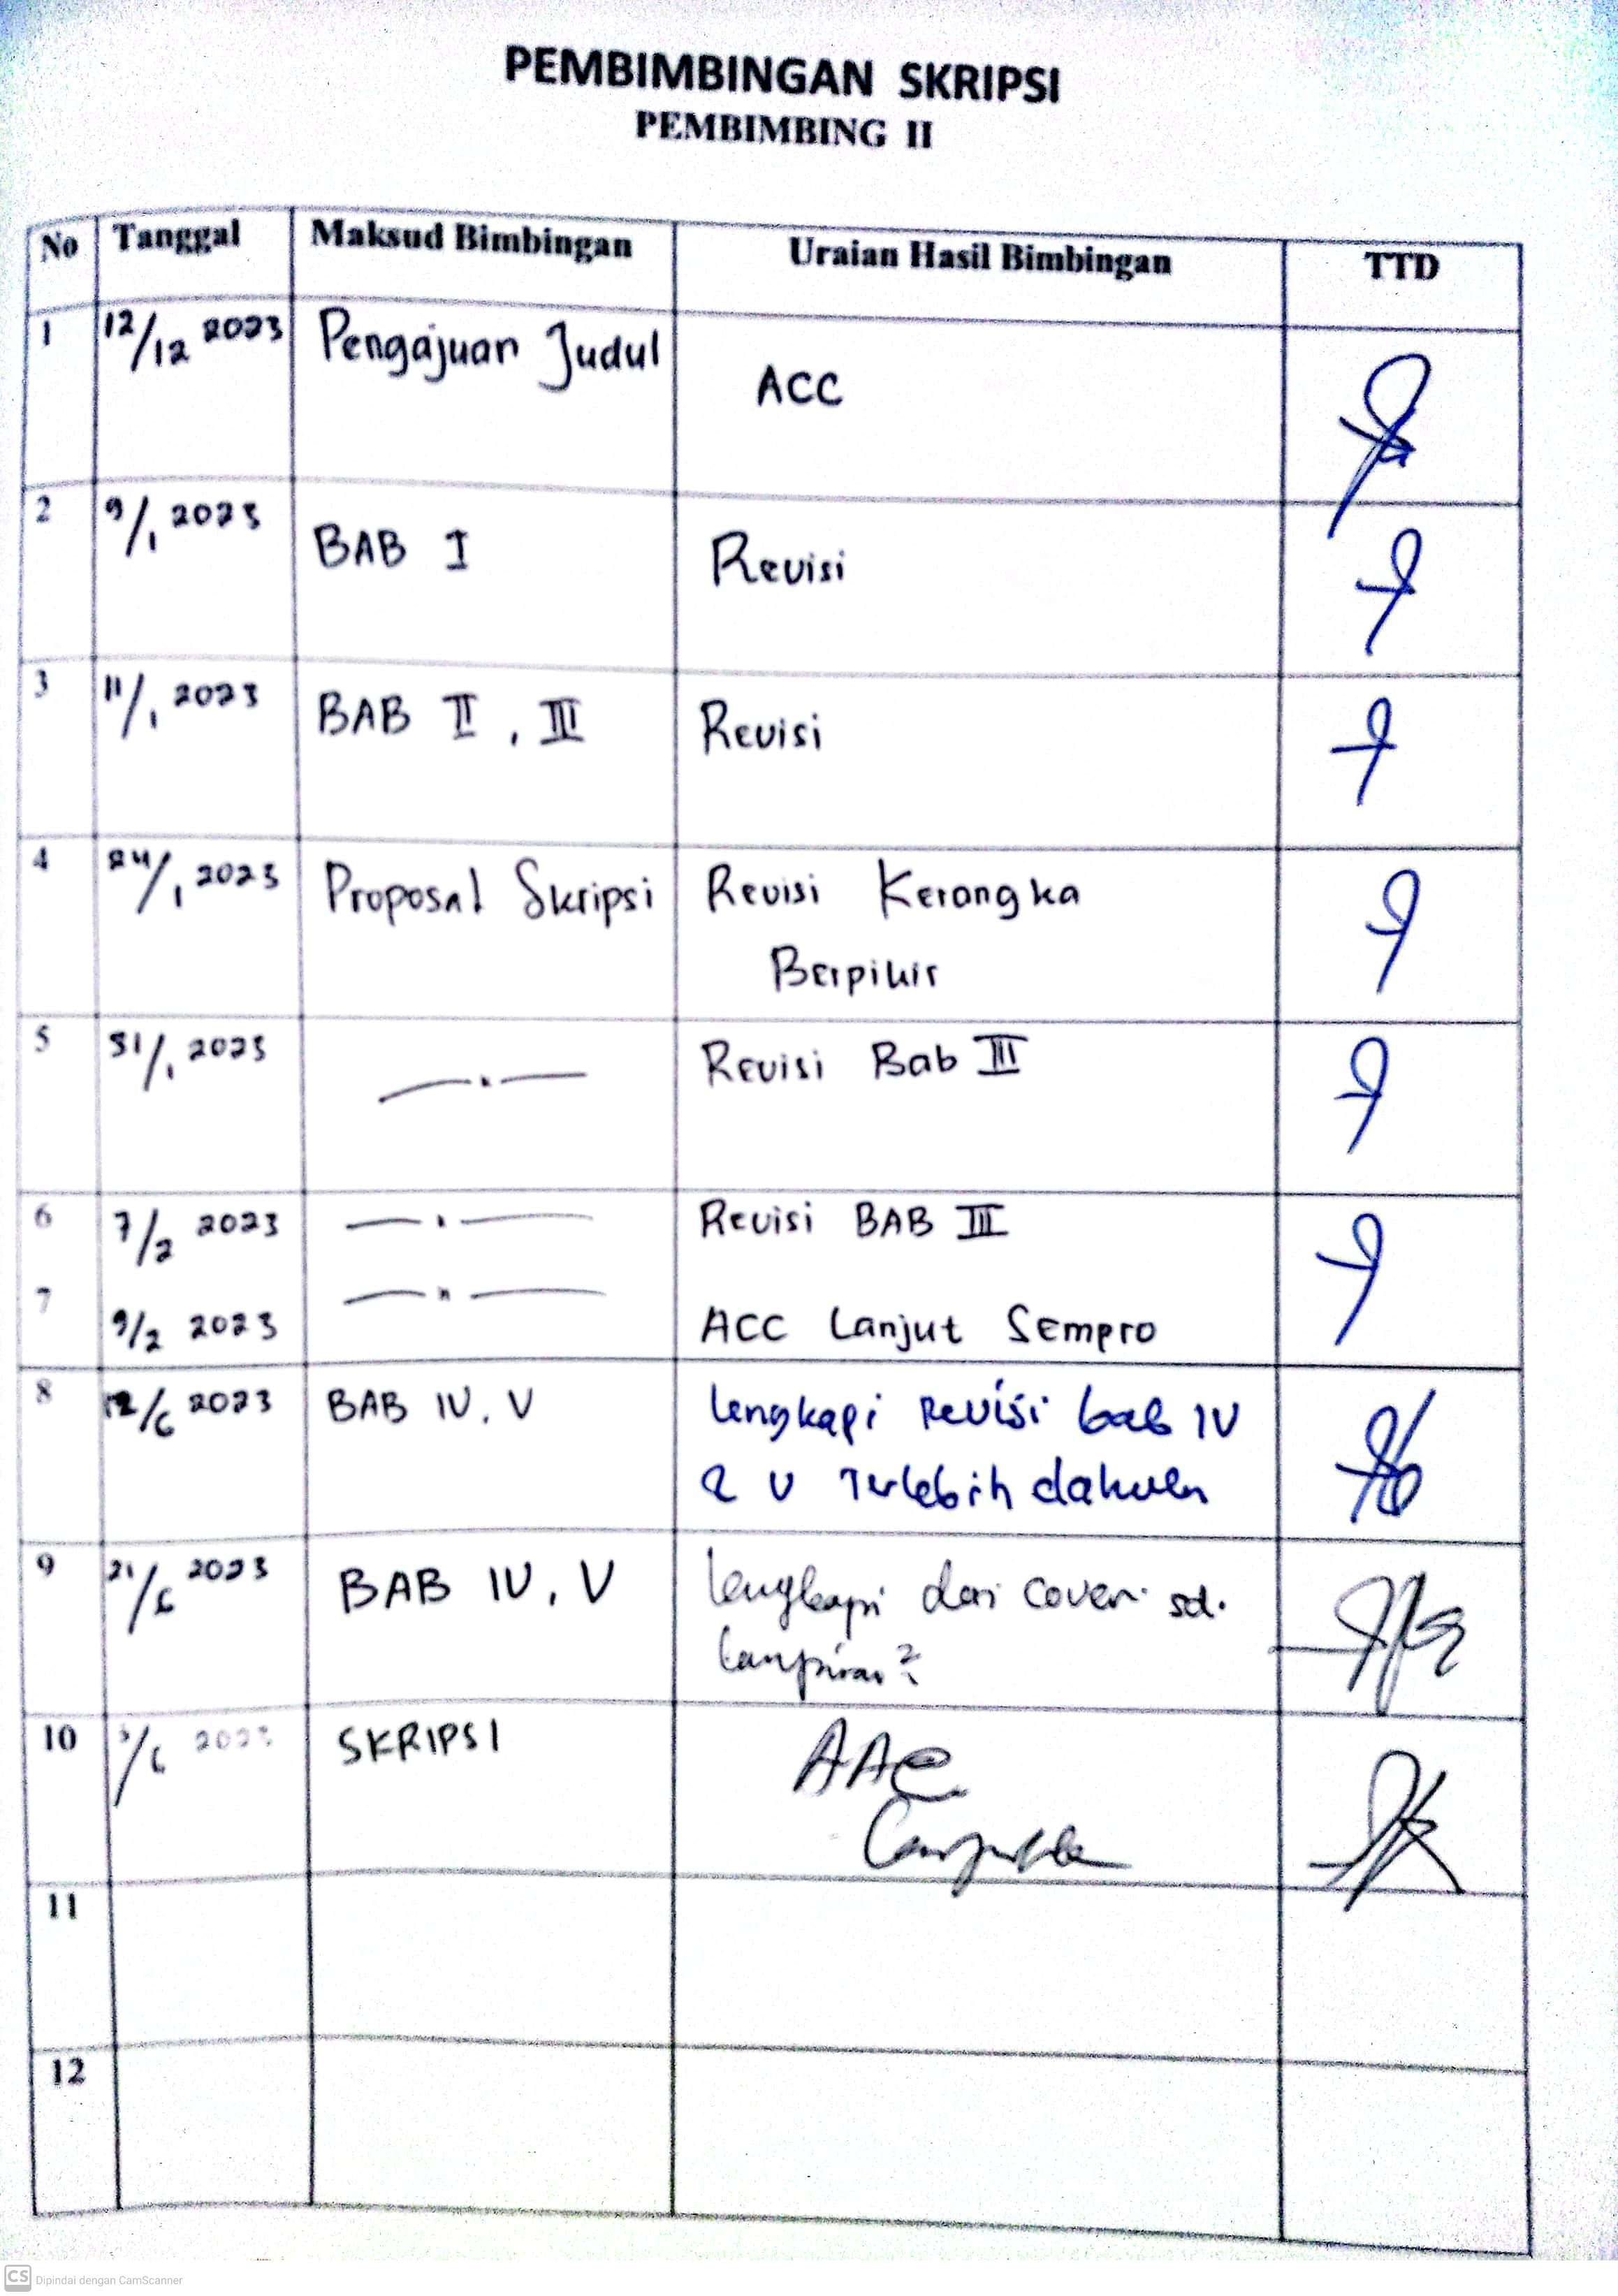 PEMBIMBINGAN SKRIPSI
PEMBIMBING II
No Tanggal Maksud Bimbingan Uraian Hasil Bimbingan TTD
1 12/12 2023 Pengajuan Judul ACC
2 9/1 2023 BAB I Revisi
3 11/1 2023 BAB II, III Revisi
4 24/1 2023 Proposal Skripsi Revisi Kerangka
Berpikir
5 31/1 2023 Revisi Bab III
6 7/2 2023 Revisi BAB III
7 9/2 2023 ACC Lanjut Sempro
8 12/6 2023 BAB IV, V lengkapi Revisi bab IV
& V Terlebih dahulu
9 21/6 2023 BAB IV, V lengkapi dari cover sd.
lampiran2
10 /6 2023 SKRIPSI
11
12
CS Dipindai dengan CamScanner